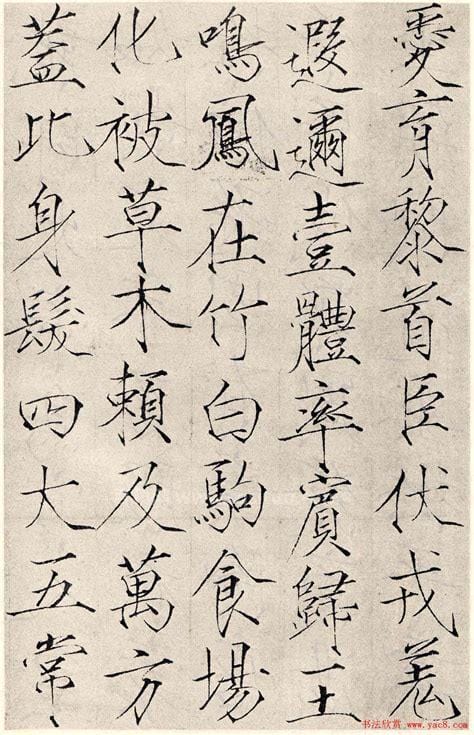 愛育黎首臣伏戎羌
遐邇壹體率賓歸王
鳴鳳在竹白駒食場
化被草木賴及萬方
蓋此身髮四大五常
书法欣赏 www.yac8.com